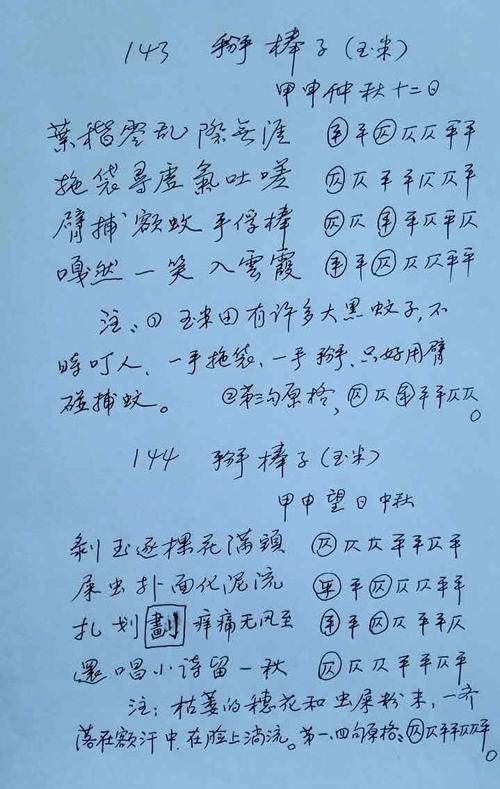 143 掰棒子(玉米)
甲申仲秋十二日
葉稭零乱際無涯 ㊉平㊉仄仄平平
拖袋尋度氣吐嗟 仄仄平平仄仄平
臂捕额蚊手俘棒 仄仄平平仄平仄
嘎然一笑入雲霞 平平仄仄仄平平
注:① 玉米田有许多大黑蚊子,不
時叮人,一手拖袋、一手掰,只好用臂
碰捕蚊。 ②第三句原格,仄仄平平平仄仄。
144 掰棒子(玉米)
甲申望日中秋
剥玉逐棵花满頭 仄仄仄平平仄平
屎虫扑面化泥流 平平仄仄仄平平
扎划劃痒痛无风至 平平仄平平仄
還唱小詩留一秋 仄仄仄平平仄平
注:枯萎的穗花和虫屎粉末,一齐
落在额汗中,在脸上淌流。第一、四句原格:仄仄平平仄仄平。